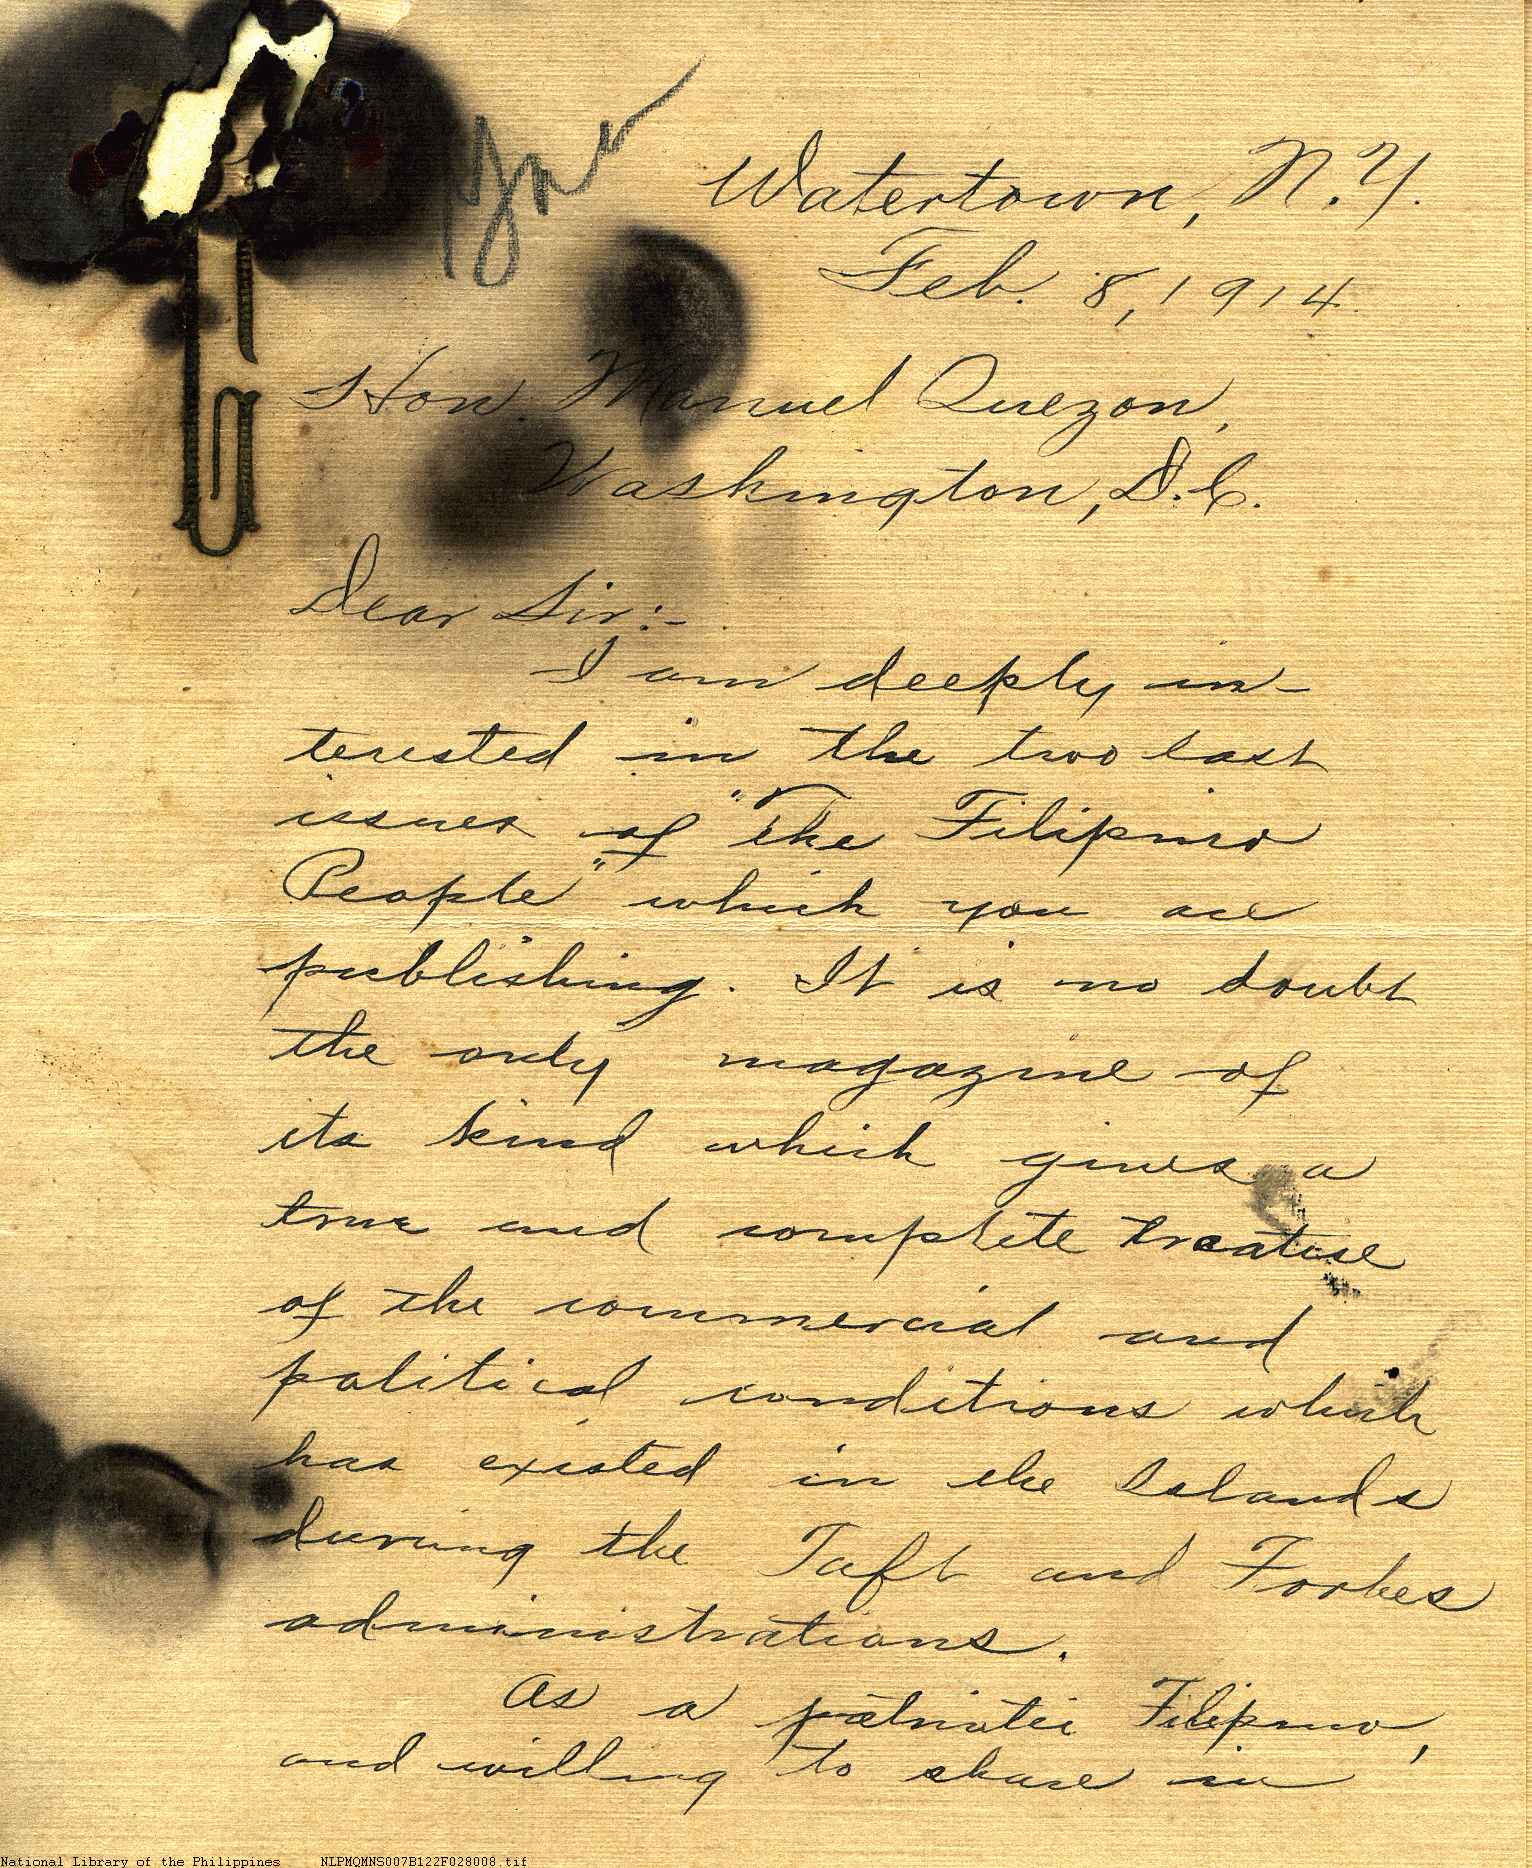 Watertown, N.Y.
Feb. 8, 1914
Hon. Manuel Quezon,
Washington, D.C.
Dear Sir:-
I am deeply in-
terested in the two last
issues of "The Filipino
People" which you are
publishing. It is no doubt
the only magazine of
its kind which gives a
true and complete treatise
of the commercial and
political conditions which
has existed in the Islands
during the Taft and Forbes
administrations.
As a patriotic Filipino,
and willing to share in
National Library of the Philippines NLPMQMNS007B122F028008.tif